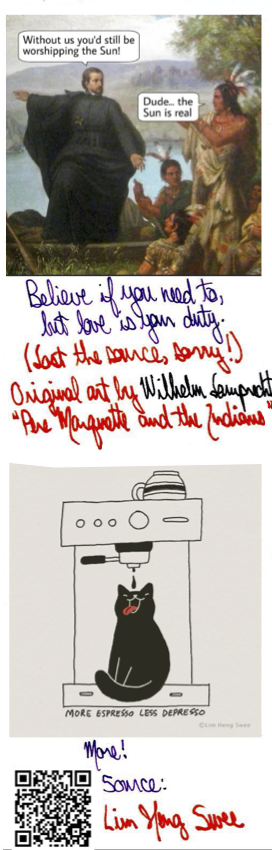 Without us you'd still be
worshipping the Sun!
Dude... the
Sun is real
Believe if you need to,
but love is your duty.
(Lost the source, sorry!)
Original art by Wilhelm Lamprecht
"Pere Marquette and the Indians"
MORE ESPRESSO LESS DEPRESSO
©Lim Heng Swee
More!
Source:
Lim Heng Swee